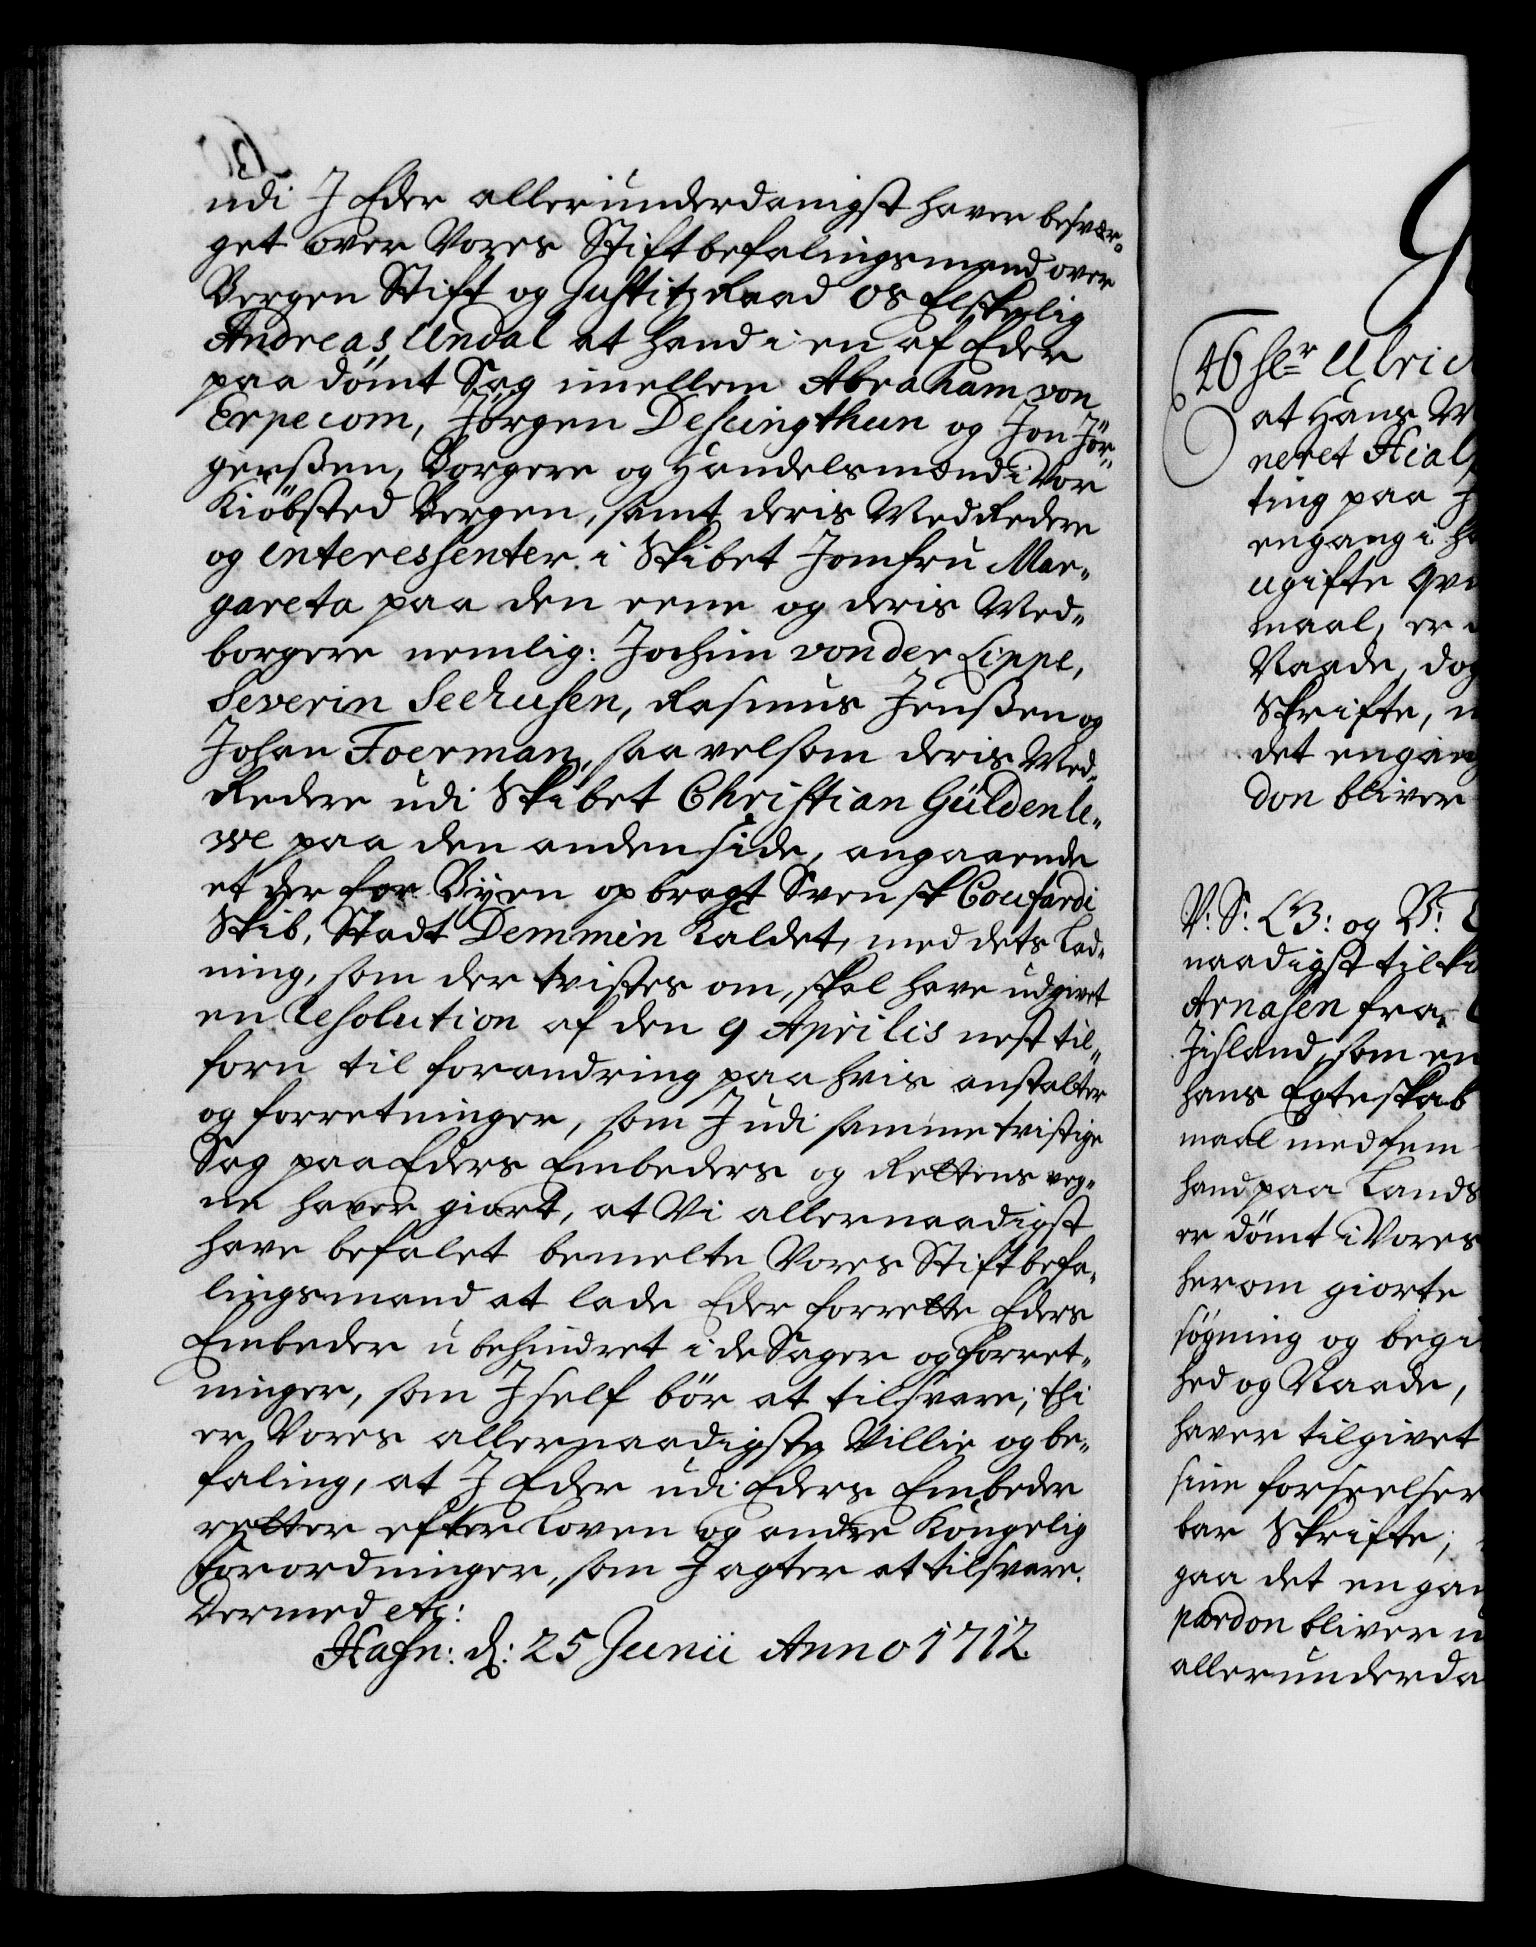 udi I Eder allerunderdanigst haver besvær-
get over Vores Stiftbefalingsmand over
Bergen Stift og Justitz Raad Os Elskelig
Andreas Undal at hand i en af Eder
paa dömt Sag imellem Abraham von
Erpecom, Jörgen Desuingthun og Jon Jör-
genßen, Borgere og Handelsmænd i Vor
Kiöbsted Bergen, samt deris Med Redere
og interessenter i Skibet Jomfru Mar-
gareta paa den eene og deris Med-
borgere nemlig: Jochim von der Lippe,
Severin Seehusen, Rasmus Jenßen og
Johan Foerman, saavelsom deris Med-
Redere udi Skibet Christian Güldenle-
we paa den anden side, angaaende
et der for Byen opbragt Svensk Coufardi
Skib, Stadt Demmin kaldet, med dets Lad-
ning, som der tvistes om, skal have udgivet
en Resolution af den 9 Aprilis nest til-
forn til forandring paa hvis anstalter
og forretninger, som I udi samme tvistige
Sag paa Eders Embeders og Rettens veg-
ne haver giort, at Vi allernaadigst
have befalet bemelte Vores Stiftbefa-
lingsmand at lade Eder forrette Eders
Embeder ubehindret i de Sager og forret-
ninger, som I self bör at tilsvare; thi
er Vores allernaadigste Villie og be-
faling, at I Eder udi Eders Embeder
retter efter Loven og andre Kongelig
Forordninger, som I agter at tilsvare.
Dermed etc:
Hafn: d: 25 Junii Anno 1712
46 Hr Ulric
at Hans M
neret Hial
ting paa
engang i
ugifte
maal, er
Naade, dog
Skrifte,
det engang
don bliver
V: S: G: og V:
naadigst
Arnasen fra
Iisland, som en
hans Egteskab
maal med fem
hand paa Lands
er dömt i Vores
herom giorte
søgning og begi
hed og Naade,
haver tilgivet
sine forseelser
bar Skrifte,
gaa det engan
pardon bliver
allerunderda